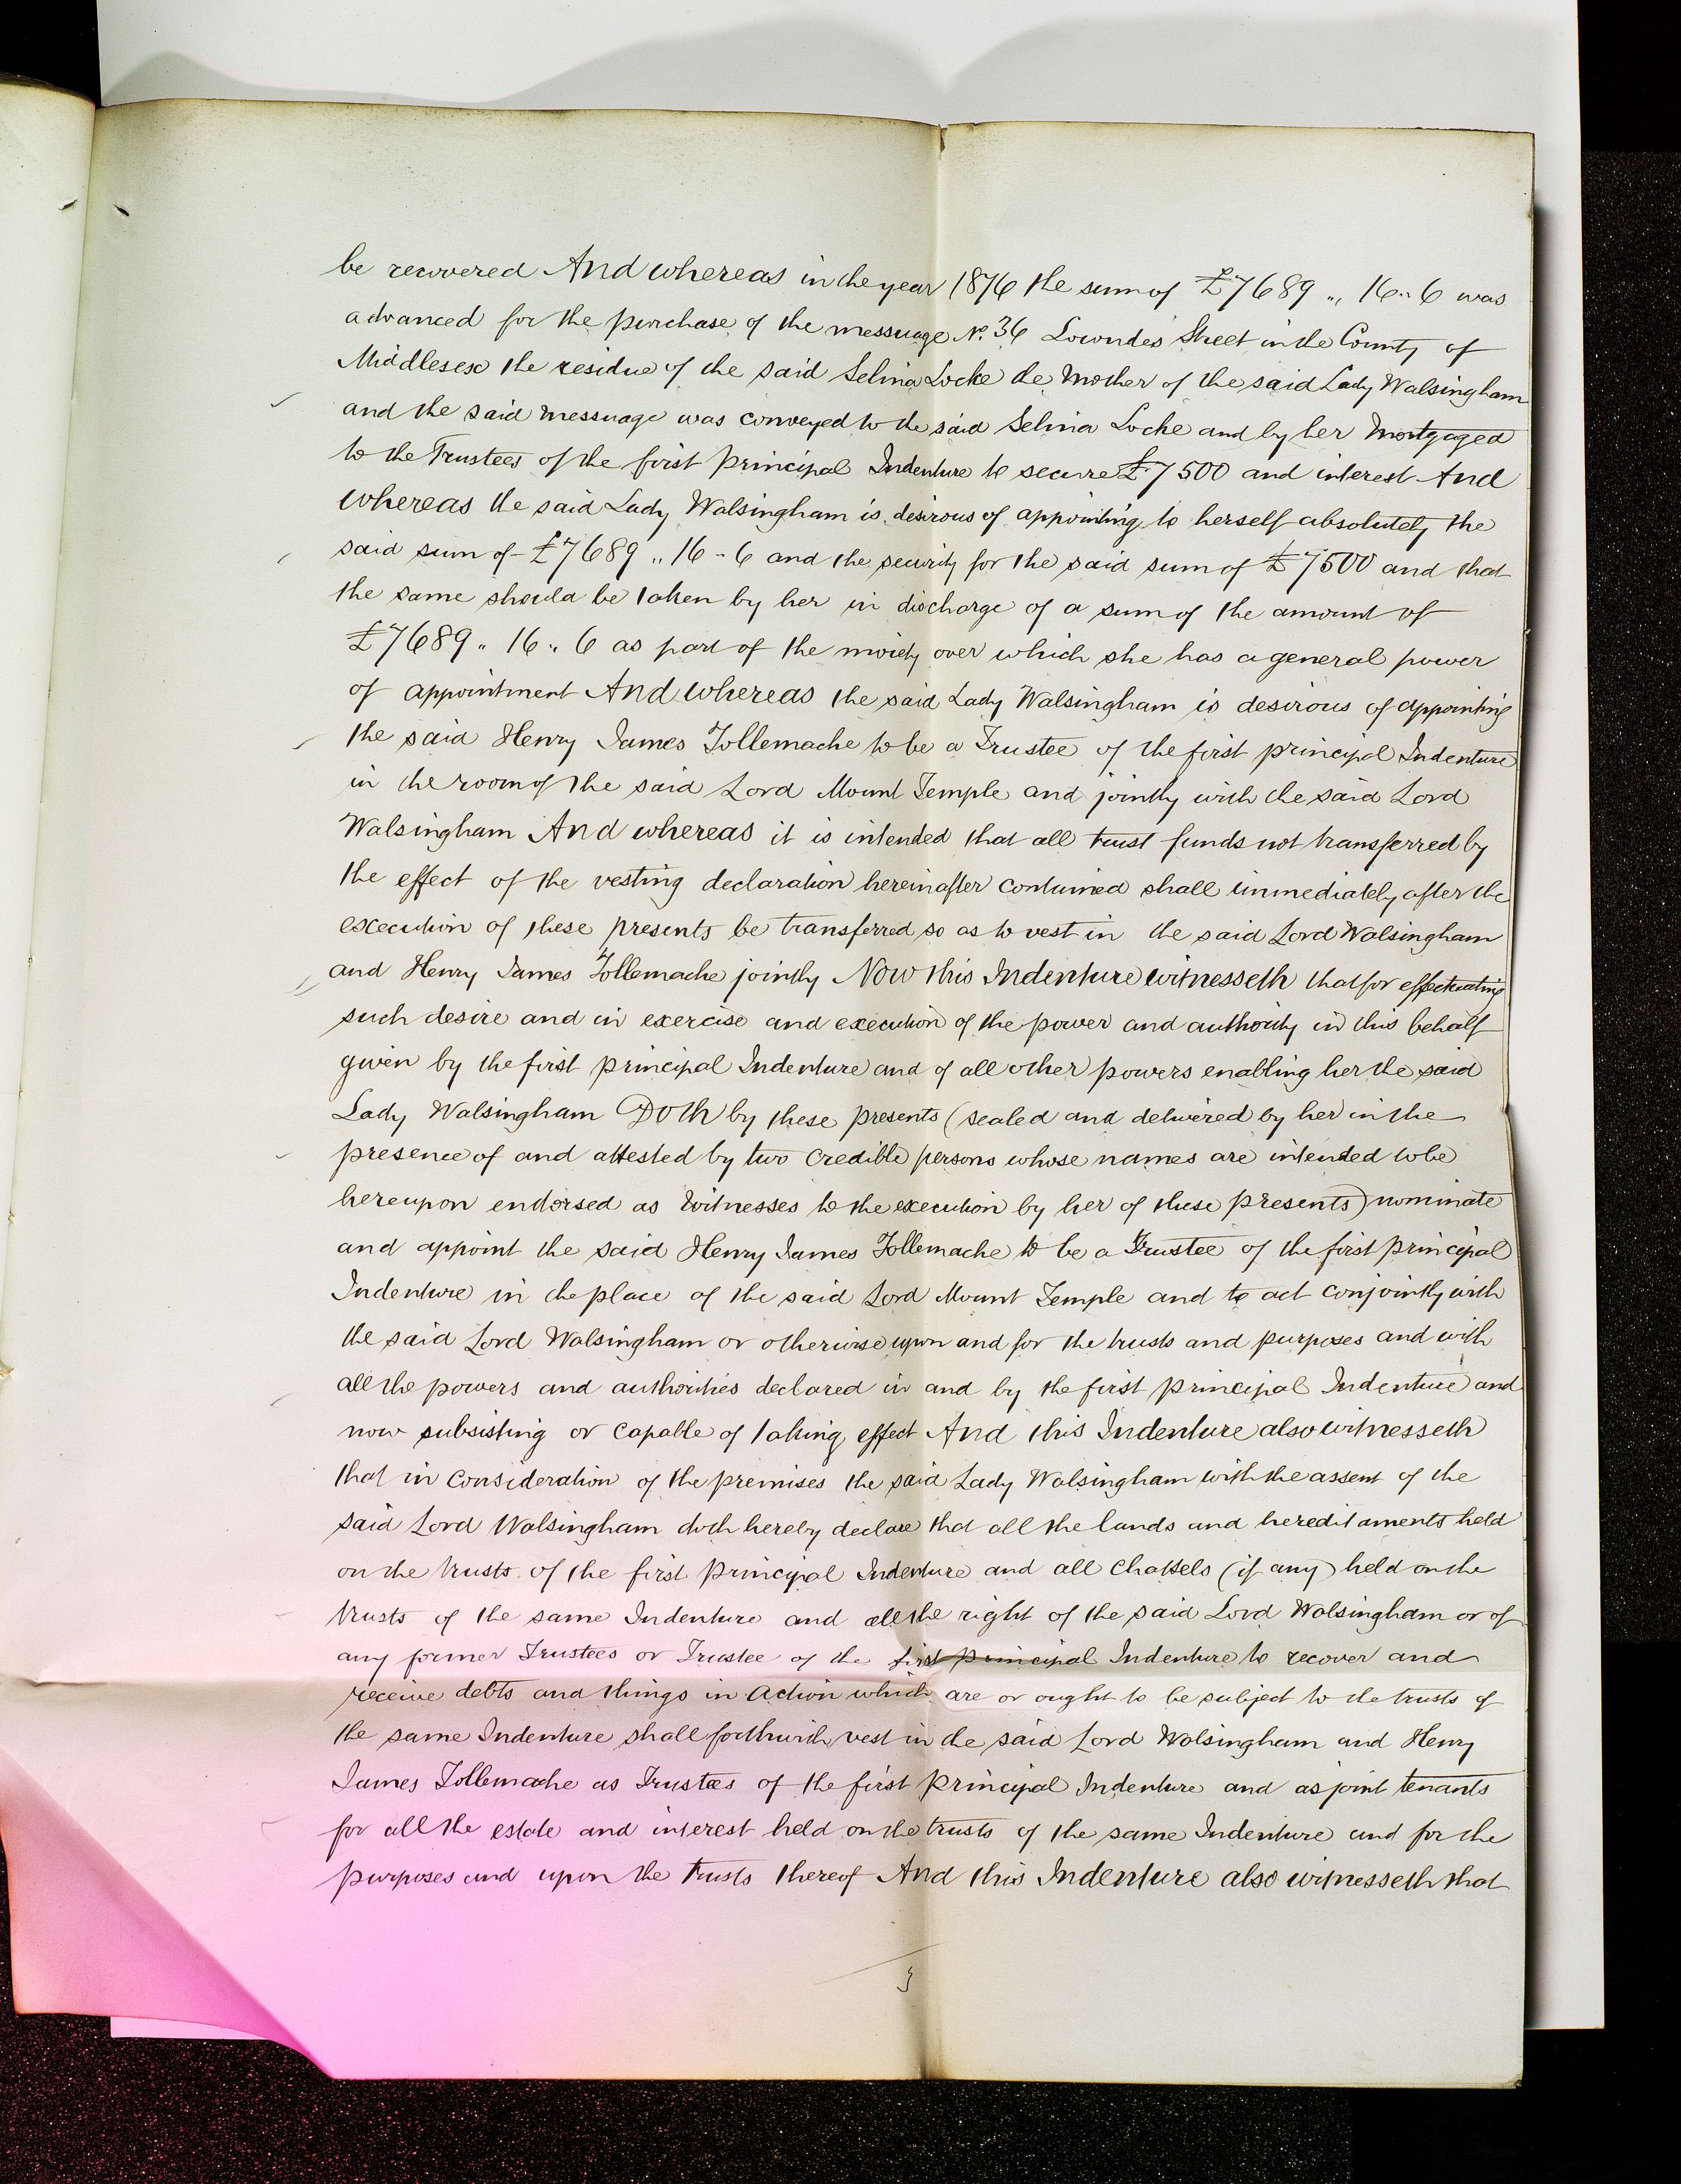 be recovered And whereas in the year 1876 the sum of £7689 ,, 16 ,, 6 was
advanced for the purchase of the messuage No. 36 Lowndes Street in the County of
Middlesex the residue of the said Selina Locke the Mother of the said Lady Walsingham
and the said messuage was conveyed to the said Selina Locke and by her Mortgaged
to the Trustees of the first principal Indenture to secure £7500 and interest And
whereas the said Lady Walsingham is desirous of appointing to herself absolutely the
said sum of £7689 ,, 16 ,, 6 and the security for the said sum of £7500 and that
the same should be taken by her in discharge of a sum of the amount of
£7689 ,, 16 ,, 6 as part of the moiety over which she has a general power
of appointment And whereas the said Lady Walsingham is desirous of appointing
the said Henry James Tollemache to be a Trustee of the first principal Indenture
in the room of the said Lord Mount Temple and jointly with the said Lord
Walsingham And whereas it is intended that all trust funds not transferred by
the effect of the vesting declaration hereinafter contained shall immediately after the
execution of these presents be transferred so as to vest in the said Lord Walsingham
and Henry James Tollemache jointly Now this Indenture witnesseth that for effectuating
such desire and in exercise and execution of the power and authority in this behalf
given by the first principal Indenture and of all other powers enabling her the said
Lady Walsingham Doth by these presents (sealed and delivered by her in the
presence of and attested by two credible persons whose names are intended to be
hereupon endorsed as Witnesses to the execution by her of these presents) nominate
and appoint the said Henry James Tollemache to be a Trustee of the first principal
Indenture in the place of the said Lord Mount Temple and to act conjointly with
the said Lord Walsingham or otherwise upon and for the trusts and purposes and with
all the powers and authorities declared in and by the first principal Indenture and
now subsisting or capable of taking effect And this Indenture also witnesseth
that in consideration of the premises the said Lady Walsingham with the assent of the
said Lord Walsingham doth hereby declare that all the lands and hereditaments held
on the trusts of the first principal Indenture and all Chattels (if any) held on the
trusts of the same Indenture and all the right of the said Lord Walsingham or of
any former Trustees or Trustee of the first principal Indenture to recover and
receive debts and things in action which are or ought to be subject to the trusts of
the same Indenture shall forthwith vest in the said Lord Walsingham and Henry
James Tollemache as Trustees of the first principal Indenture and as joint tenants
for all the estate and interest held on the trusts of the same Indenture and for the
purposes and upon the trusts thereof And this Indenture also witnesseth that
3